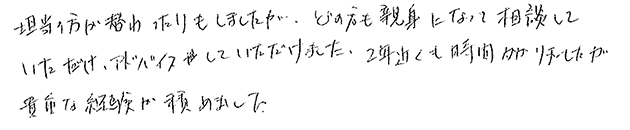 担当の方が替わったりもしましたが、どの方も親身になって相談して
いただけ、アドバイスもしていただけました。2年近くも時間かかりましたが
貴重な経験が積めました